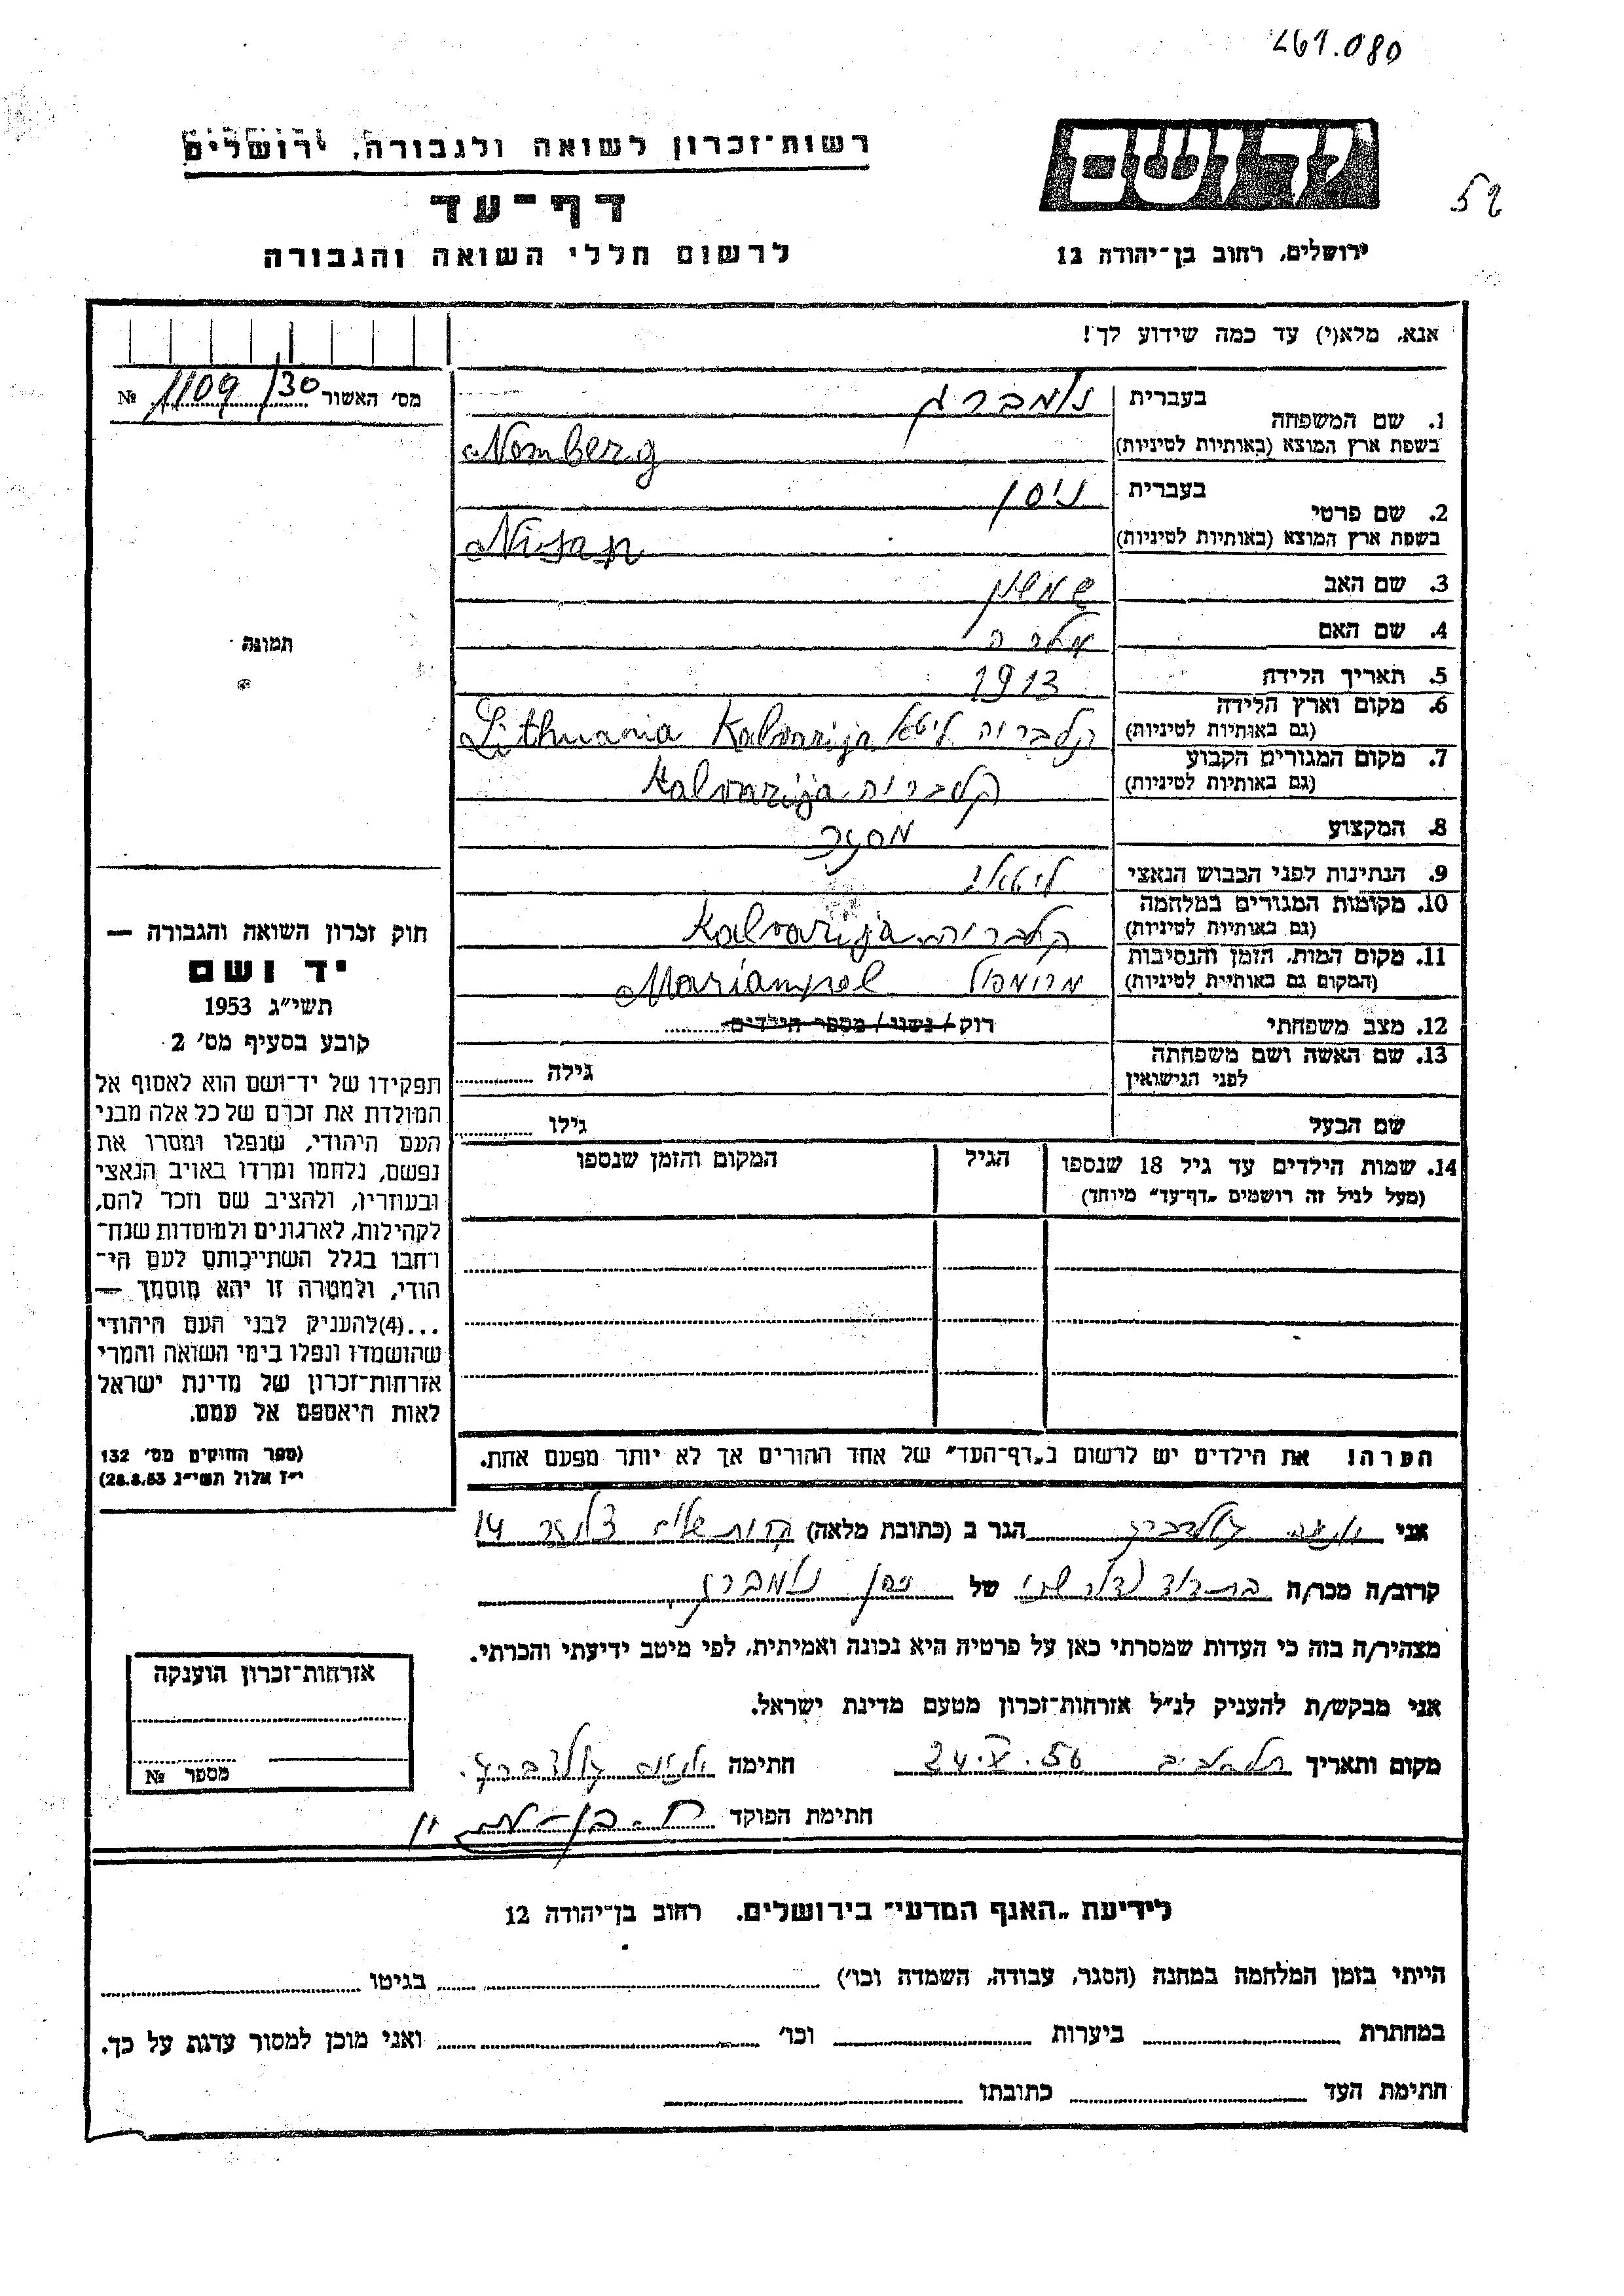 261.080
רשות־זכרון לשואה ולגבורה, ירושלים
דף־עד
לרשום חללי השואה והגבורה
יד ושם
ירושלים, רחוב בן־יהודה 12
52
אנא, מלא(י) עד כמה שידוע לך!
מס׳ האשור 1109/30 №
1. שם המשפחה בעברית נומברג
בשפת ארץ המוצא (באותיות לטיניות) Nomberg
2. שם פרטי בעברית ניסן
בשפת ארץ המוצא (באותיות לטיניות) Nisan
3. שם האב שמשון
4. שם האם
5. תאריך הלידה 1913
6. מקום וארץ הלידה (גם באותיות לטיניות) קלבריה ליטא Kalvarija Lithuania
7. מקום המגורים הקבוע (גם באותיות לטיניות) קלבריה Kalvarija
8. המקצוע מסגר
9. הנתינות לפני הכבוש הנאצי ליטאי
10. מקומות המגורים במלחמה (גם באותיות לטיניות) קלבריה Kalvarija
11. מקום המות, הזמן והנסיבות (המקום גם באותיות לטיניות) מרימפול Mariampol
12. מצב משפחתי רוק / נשוי / מספר הילדים
13. שם האשה ושם משפחתה לפני הנישואין גילה
שם הבעל גילו
14. שמות הילדים עד גיל 18 שנספו הגיל המקום והזמן שנספו
(מעל לגיל זה רושמים „דף־עד” מיוחד)
הערה! את הילדים יש לרשום ב„דף־העד” של אחד ההורים אך לא יותר מפעם אחת.
תמונה
חוק זכרון השואה והגבורה —
יד ושם
תשי״ג 1953
קובע בסעיף מס׳ 2
תפקידו של יד־ושם הוא לאסוף אל
המולדת את זכרם של כל אלה מבני
העם היהודי, שנפלו ומסרו את
נפשם, נלחמו ומרדו באויב הנאצי
ובעוזריו, ולהציב שם וזכר להם,
לקהילות, לארגונים ולמוסדות שנח־
רבו בגלל השתייכותם לעם הי־
הודי, ולמטרה זו יהא מוסמך —
...(4)להעניק לבני העם היהודי
שהושמדו ונפלו בימי השואה והמרי
אזרחות־זכרון של מדינת ישראל
לאות היאספם אל עמם.
(ספר החוקים מס׳ 132
י״ז אלול תשי״ג 28.8.53)
אני גולדברג הגר ב (כתובת מלאה) 14
קרוב/ה מכר/ה בת־דוד של ניסן נומברג
מצהיר/ה בזה כי העדות שמסרתי כאן על פרטיה היא נכונה ואמיתית, לפי מיטב ידיעתי והכרתי.
אני מבקש/ת להעניק לנ״ל אזרחות־זכרון מטעם מדינת ישראל.
מקום ותאריך תל־אביב 24.X.56 חתימה גולדברג
חתימת הפוקד
אזרחות־זכרון הוענקה
מספר №
לידיעת „האגף המדעי” בירושלים, רחוב בן־יהודה 12
הייתי בזמן המלחמה במחנה (הסגר, עבודה, השמדה וכו׳) בגיטו
במחתרת ביערות וכו׳ ואני מוכן למסור עדות על כך.
חתימת העד כתובתו